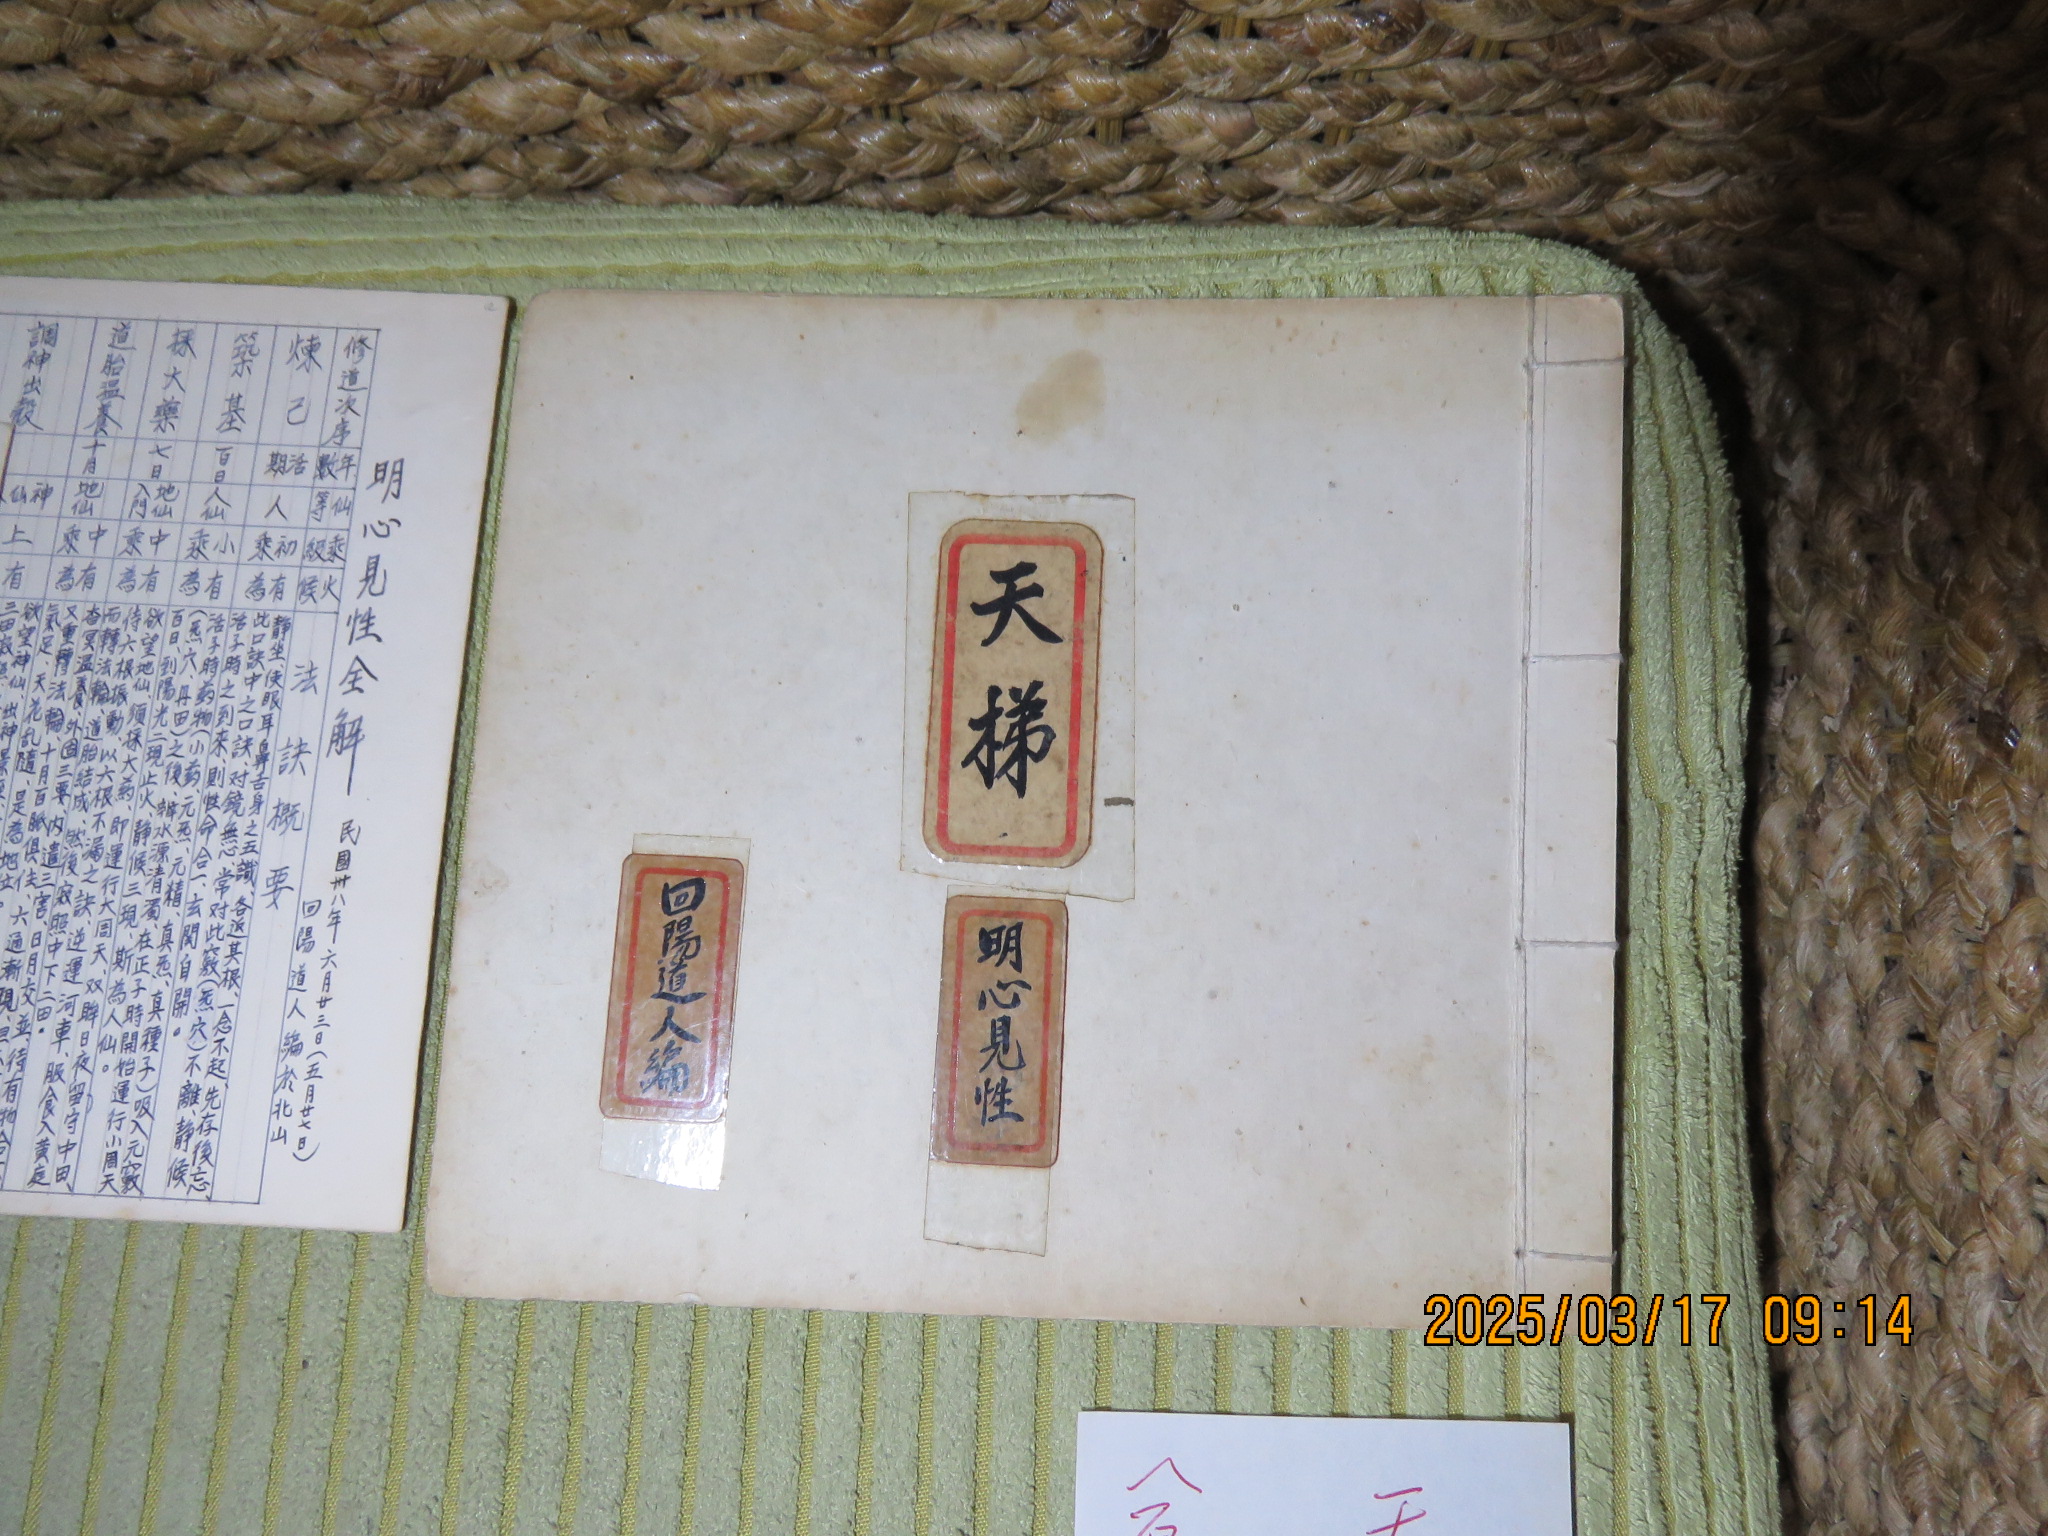 天梯
明心見性
回陽道人編
明心見性全解
民國卅八年六月廿三日(五月廿七日)
回陽道人編於北山
修道次序
年數
仙等
乘級
火候
法訣概要
煉己
活期
人
初乘
有為
靜坐、使眼耳鼻舌身之五識、各返其根、一念不起、先存後忘、
此口訣中之口訣、对鏡無心、常对此竅(炁穴)不離、靜候
活子時之到來、則性命合一、玄関自開。
築基
百日
人仙
小乘
有為
活子時葯物(小葯、元炁、元精、真炁、真種子)吸入元竅
(炁穴、丹田)之後、辨水源清濁、在正子時開始運行小周天
百日、到陽光二現止火、靜候三現、斯為人仙。
採大藥
七日
地仙入門
中乘
有為
欲望地仙、須採大葯、即運行大周天、双眸日夜留守中田、
待六根振動、以六根不漏之訣、逆運河車、服食入黃庭
道胎溫養
十月
地仙
中乘
有為
而轉法輪、道胎結成、然後寂照中下二田。
杳冥溫養、外固三要、內遣三害、日月交並、待有
又重轉法輪、十月百脈俱住、六通漸現
氣足、天花乱墜、是為地仙
調神出殼
神仙
上
有
欲望神仙、出神景
2025/03/17 09:14